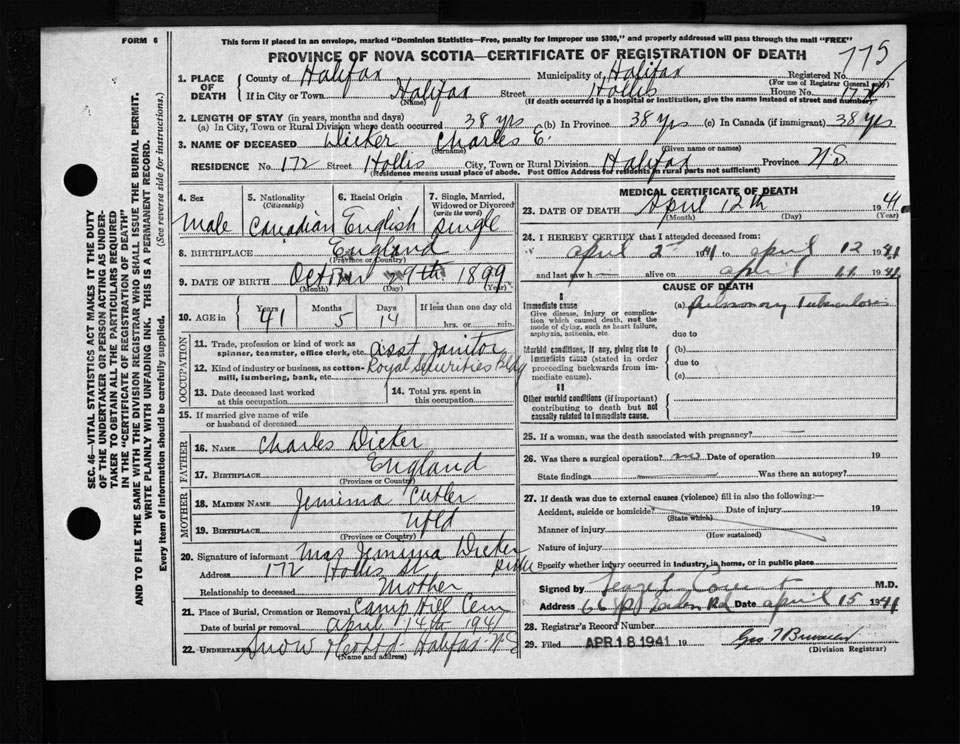 FORM 6
This form if placed in an envelope, marked "Dominion Statistics—Free, penalty for improper use $300," and properly addressed will pass through the mail "FREE"
PROVINCE OF NOVA SCOTIA—CERTIFICATE OF REGISTRATION OF DEATH
775
1. PLACE OF DEATH
County of Halifax Municipality of Halifax Registered No.
(For use of Registrar General only)
If in City or Town Halifax Street Hollis House No. 172
(Name) (If death occurred in a hospital or institution, give the name instead of street and number)
2. LENGTH OF STAY (in years, months and days)
(a) In City, Town or Rural Division where death occurred 38 yrs (b) In Province 38 yrs (c) In Canada (if immigrant) 38 yrs
3. NAME OF DECEASED Dicker Charles E.
(Surname) (Given name or names)
RESIDENCE No. 172 Street Hollis City, Town or Rural Division Halifax Province N.S.
(Residence means usual place of abode. Post Office Address for residents in rural parts not sufficient)
4. Sex
male
5. Nationality
(Citizenship)
Canadian
6. Racial Origin
English
7. Single, Married, Widowed or Divorced
(write the word)
single
8. BIRTHPLACE England
(Province or Country)
9. DATE OF BIRTH October 9th 1899
(Month) (Day) (Year)
10. AGE in Years 41 Months 5 Days 14 If less than one day old
hrs. or min.
OCCUPATION
11. Trade, profession or kind of work as
spinner, teamster, office clerk, etc. asst Janitor
12. Kind of industry or business, as cotton-
mill, lumbering, bank, etc. Royal Securities Bldg
13. Date deceased last worked
at this occupation
14. Total yrs. spent in
this occupation
15. If married give name of wife
or husband of deceased
FATHER
16. NAME Charles Dicker
17. BIRTHPLACE England
(Province or Country)
MOTHER
18. MAIDEN NAME Jemima Cutler
19. BIRTHPLACE Nfld
(Province or Country)
20. Signature of informant Mrs Jemima Dicker
Address 172 Hollis St
Relationship to deceased Mother
21. Place of Burial, Cremation or Removal Camp Hill Cem
Date of burial or removal april 14th 1941
22. UNDERTAKER Snow Halifax N S
(Name and address)
MEDICAL CERTIFICATE OF DEATH
23. DATE OF DEATH April 12th 1941
(Month) (Day) (Year)
24. I HEREBY CERTIFY that I attended deceased from:
april 2 1941 to april 12 1941
and last saw h alive on april 11 1941
CAUSE OF DEATH
I
Immediate cause
Give disease, injury or complica-
tion which caused death, not the
mode of dying, such as heart failure,
asphyxia, asthenia, etc.
(a) pulmonary tuberculosis
due to
Morbid conditions, if any, giving rise to
immediate cause (stated in order
proceeding backwards from im-
mediate cause).
(b)
due to
(c)
II
Other morbid conditions (if important)
contributing to death but not
causally related to immediate cause.
25. If a woman, was the death associated with pregnancy?
26. Was there a surgical operation? no Date of operation 19
State findings Was there an autopsy?
27. If death was due to external causes (violence) fill in also the following:—
Accident, suicide or homicide? Date of injury 19
(State which)
Manner of injury
(How sustained)
Nature of injury
Specify whether injury occurred in industry, in home, or in public place
Signed by M.D.
Address 66 Rd Date april 15 1941
28. Registrar's Record Number
29. Filed APR 18 1941 19
(Division Registrar)
SEC. 46—VITAL STATISTICS ACT MAKES IT THE DUTY
OF THE UNDERTAKER OR PERSON ACTING AS UNDER-
TAKER TO OBTAIN ALL THE PARTICULARS REQUIRED
IN THE "CERTIFICATE OF REGISTRATION OF DEATH"
AND TO FILE THE SAME WITH THE DIVISION REGISTRAR WHO SHALL ISSUE THE BURIAL PERMIT.
WRITE PLAINLY WITH UNFADING INK. THIS IS A PERMANENT RECORD.
Every item of information should be carefully supplied. (See reverse side for instructions.)